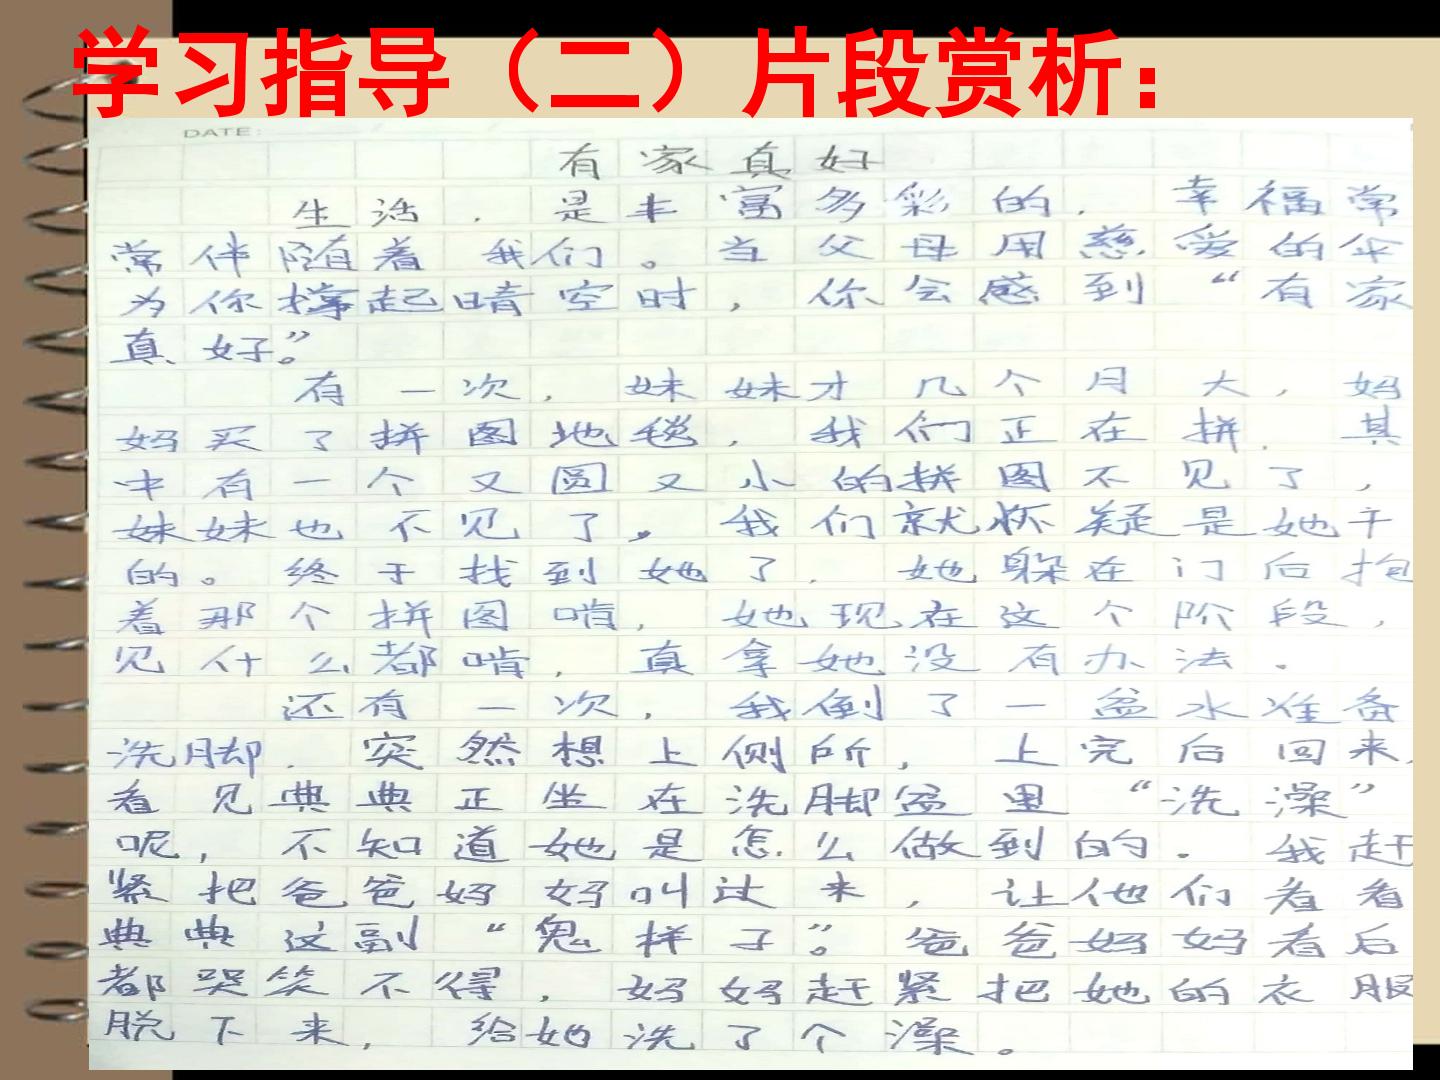 学习指导（二）片段赏析：
DATE:
有家真好
生活，是丰富多彩的，幸福常
常伴随着我们。当父母用慈爱的伞
为你撑起晴空时，你会感到“有家
真好”。
有一次，妹妹才几个月大，妈
妈买了拼图地毯，我们正在拼，其
中有一个又圆又小的拼图不见了，
妹妹也不见了。我们就怀疑是她干
的。终于找到她了，她躲在门后抱
着那个拼图啃，她现在这个阶段，
见什么都啃，真拿她没有办法。
还有一次，我倒了一盆水准备
洗脚，突然想上侧所，上完后回来，
看见典典正坐在洗脚盆里“洗澡”
呢，不知道她是怎么做到的。我赶
紧把爸爸妈妈叫过来，让他们看看
典典这副“鬼样子”。爸爸妈妈看后
都哭笑不得，妈妈赶紧把她的衣服
脱下来，给她洗了个澡。